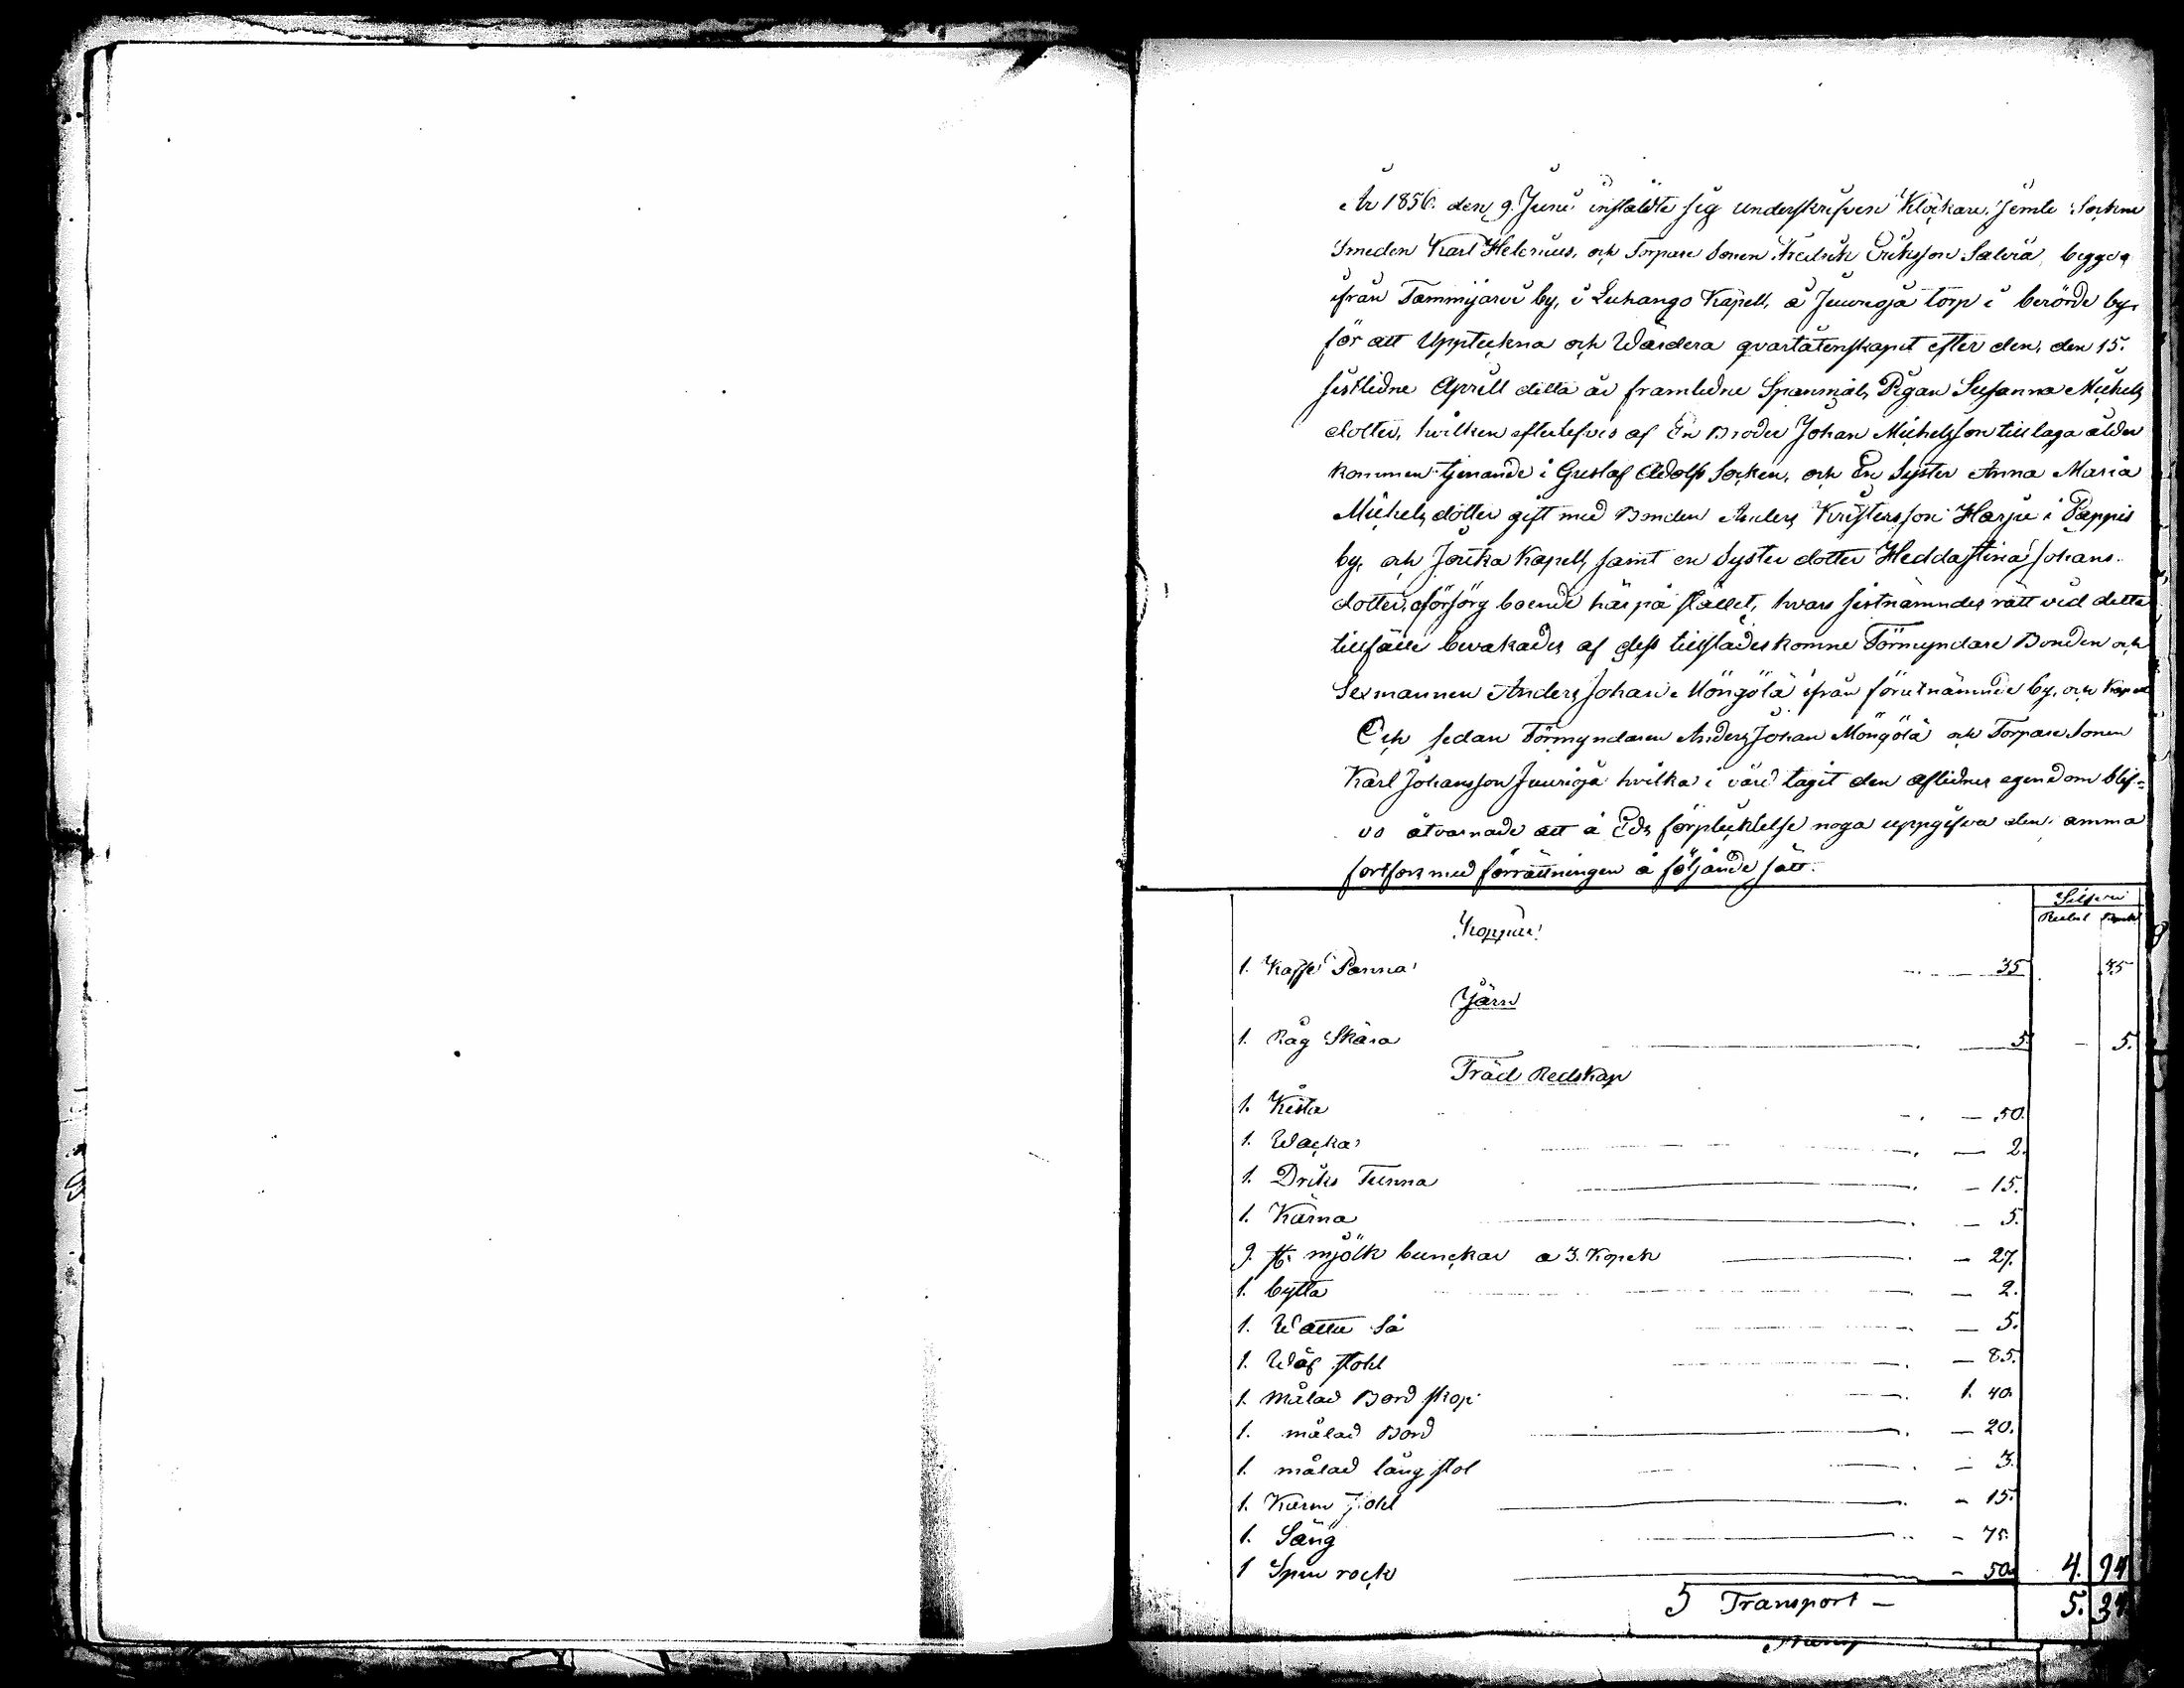 År 1856. den 9. Juni instäldte sig underskrifven Klockare, jemte Sockne
Smeden Karl Helenius, och Torpare Sonen Fredrik Eriksson Salvia, begge
ifrån Tammijärvi by, i Luhango Kapell, å Juurioja torp i berörde by,
för att Uppteckna och Wärdera qvarlåtenskapet efter den, den 15.
sistledne Aprill detta år framledne Spanmåls Pigan Susanna Michels
dotter, hvilken efterlefves af En Broder Johan Michelsson till laga ålder
kommen tjenande i Gustaf Adolfs Socken, och En Syster Anna Maria
Michels dotter gift med Bonden Anders Kristersson Harju i Pappis
by, och Joutsa Kapell, samt en Syster dotter Hedda Stina Johans
dotter, oförsörg boende här på stället, hvars sistnämndes rätt vid detta
tillfälle bevakades af dess tillstädes komne Förmyndare Bonden och
Sexmannen Anders Johan Möngölä ifrån förutnämnde by, och Kapell
Och sedan Förmyndaren Anders Johan Möngölä och Torpare Sonen
Karl Johansson Juurioja hvilka i vård tagit den aflednes egendom blif-
vo åtvarnade att å Eds förplicktelse noga uppgifva den samma
fortfors med förrättningen å följande sätt.
Silfver
Rubel Kopek
Koppar
1. Kaffe Panna 35 35
Järn
1. Råg Skära 5. 5.
Träd Redskap
1. Kista 50.
1. Wacka 2.
1. Driks Tunna 15.
1. Kärna 5.
9. st. mjölk bunckar a 3. Kopek 27.
1. bytta 2.
1. Watten Så 5.
1. Wäf stohl 85.
1. Målad Bord skop 1. 40.
1. målad Bord 20.
1. målad lång stol 3.
1. Karm stohl 15.
1. Säng 75.
1 Spin rock 50. 4. 94
Transport 5. 34